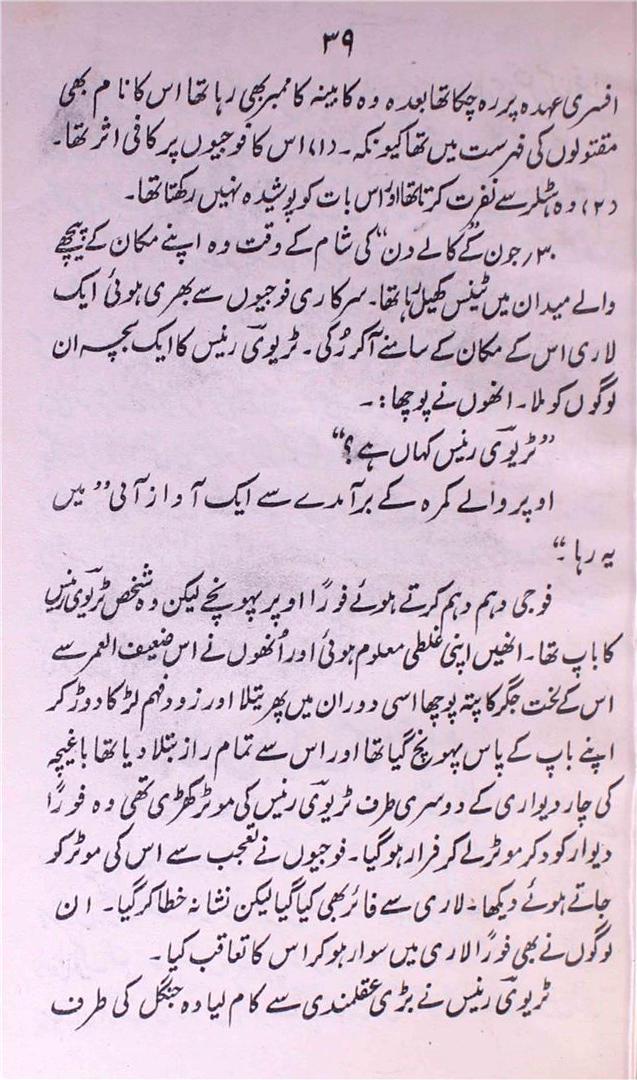 ۳۹
افسری عہدہ پر رہ چکا تھا بعدہ وہ کابینہ کا ممبر بھی رہا تھا اس کا نام بھی
مقتولوں کی فہرست میں تھا کیونکہ۔ (۱) اس کا فوجیوں پر کافی اثر تھا۔
(۲) وہ ہٹلر سے نفرت کرتا تھا اور اس بات کو پوشیدہ نہیں رکھتا تھا۔
۳۰؍جون کے "کالے دن" کی شام کے وقت وہ اپنے مکان کے پیچھے
والے میدان میں ٹینس کھیل رہا تھا۔ سرکاری فوجیوں سے بھری ہوئی ایک
لاری اس کے مکان کے سامنے آکر رُکی۔ ٹریوی رینس کا ایک بچہ ان
لوگوں کو ملا۔ انھوں نے پوچھا:۔
"ٹریوی رینس کہاں ہے؟"
اوپر والے کمرہ کے برآمدے سے ایک آواز آئی "میں
یہ رہا۔"
فوجی دہم دہم کرتے ہوئے فوراً اوپر پہونچے لیکن وہ شخص ٹریوی رینس
کا باپ تھا۔ انھیں اپنی غلطی معلوم ہوئی اور اُنھوں نے اس ضعیف العمر سے
اس کے لخت جگر کا پتہ پوچھا اسی دوران میں پھریتلا اور زود فہم لڑکا دوڑ کر
اپنے باپ کے پاس پہونچ گیا تھا اور اس سے تمام راز بتلا دیا تھا باغیچہ
کی چار دیواری کے دوسری طرف ٹریوی رینس کی موٹر کھڑی تھی وہ فوراً
دیوار کود کر موٹر لے کر فرار ہو گیا۔ فوجیوں نے تعجب سے اس کی موٹر کو
جاتے ہوئے دیکھا۔ لاری سے فائر بھی کیا گیا لیکن نشانہ خطا کر گیا۔ ان
لوگوں نے بھی فوراً لاری میں سوار ہو کر اس کا تعاقب کیا۔
ٹریوی رینس نے بڑی عقلمندی سے کام لیا وہ جنگل کی طرف